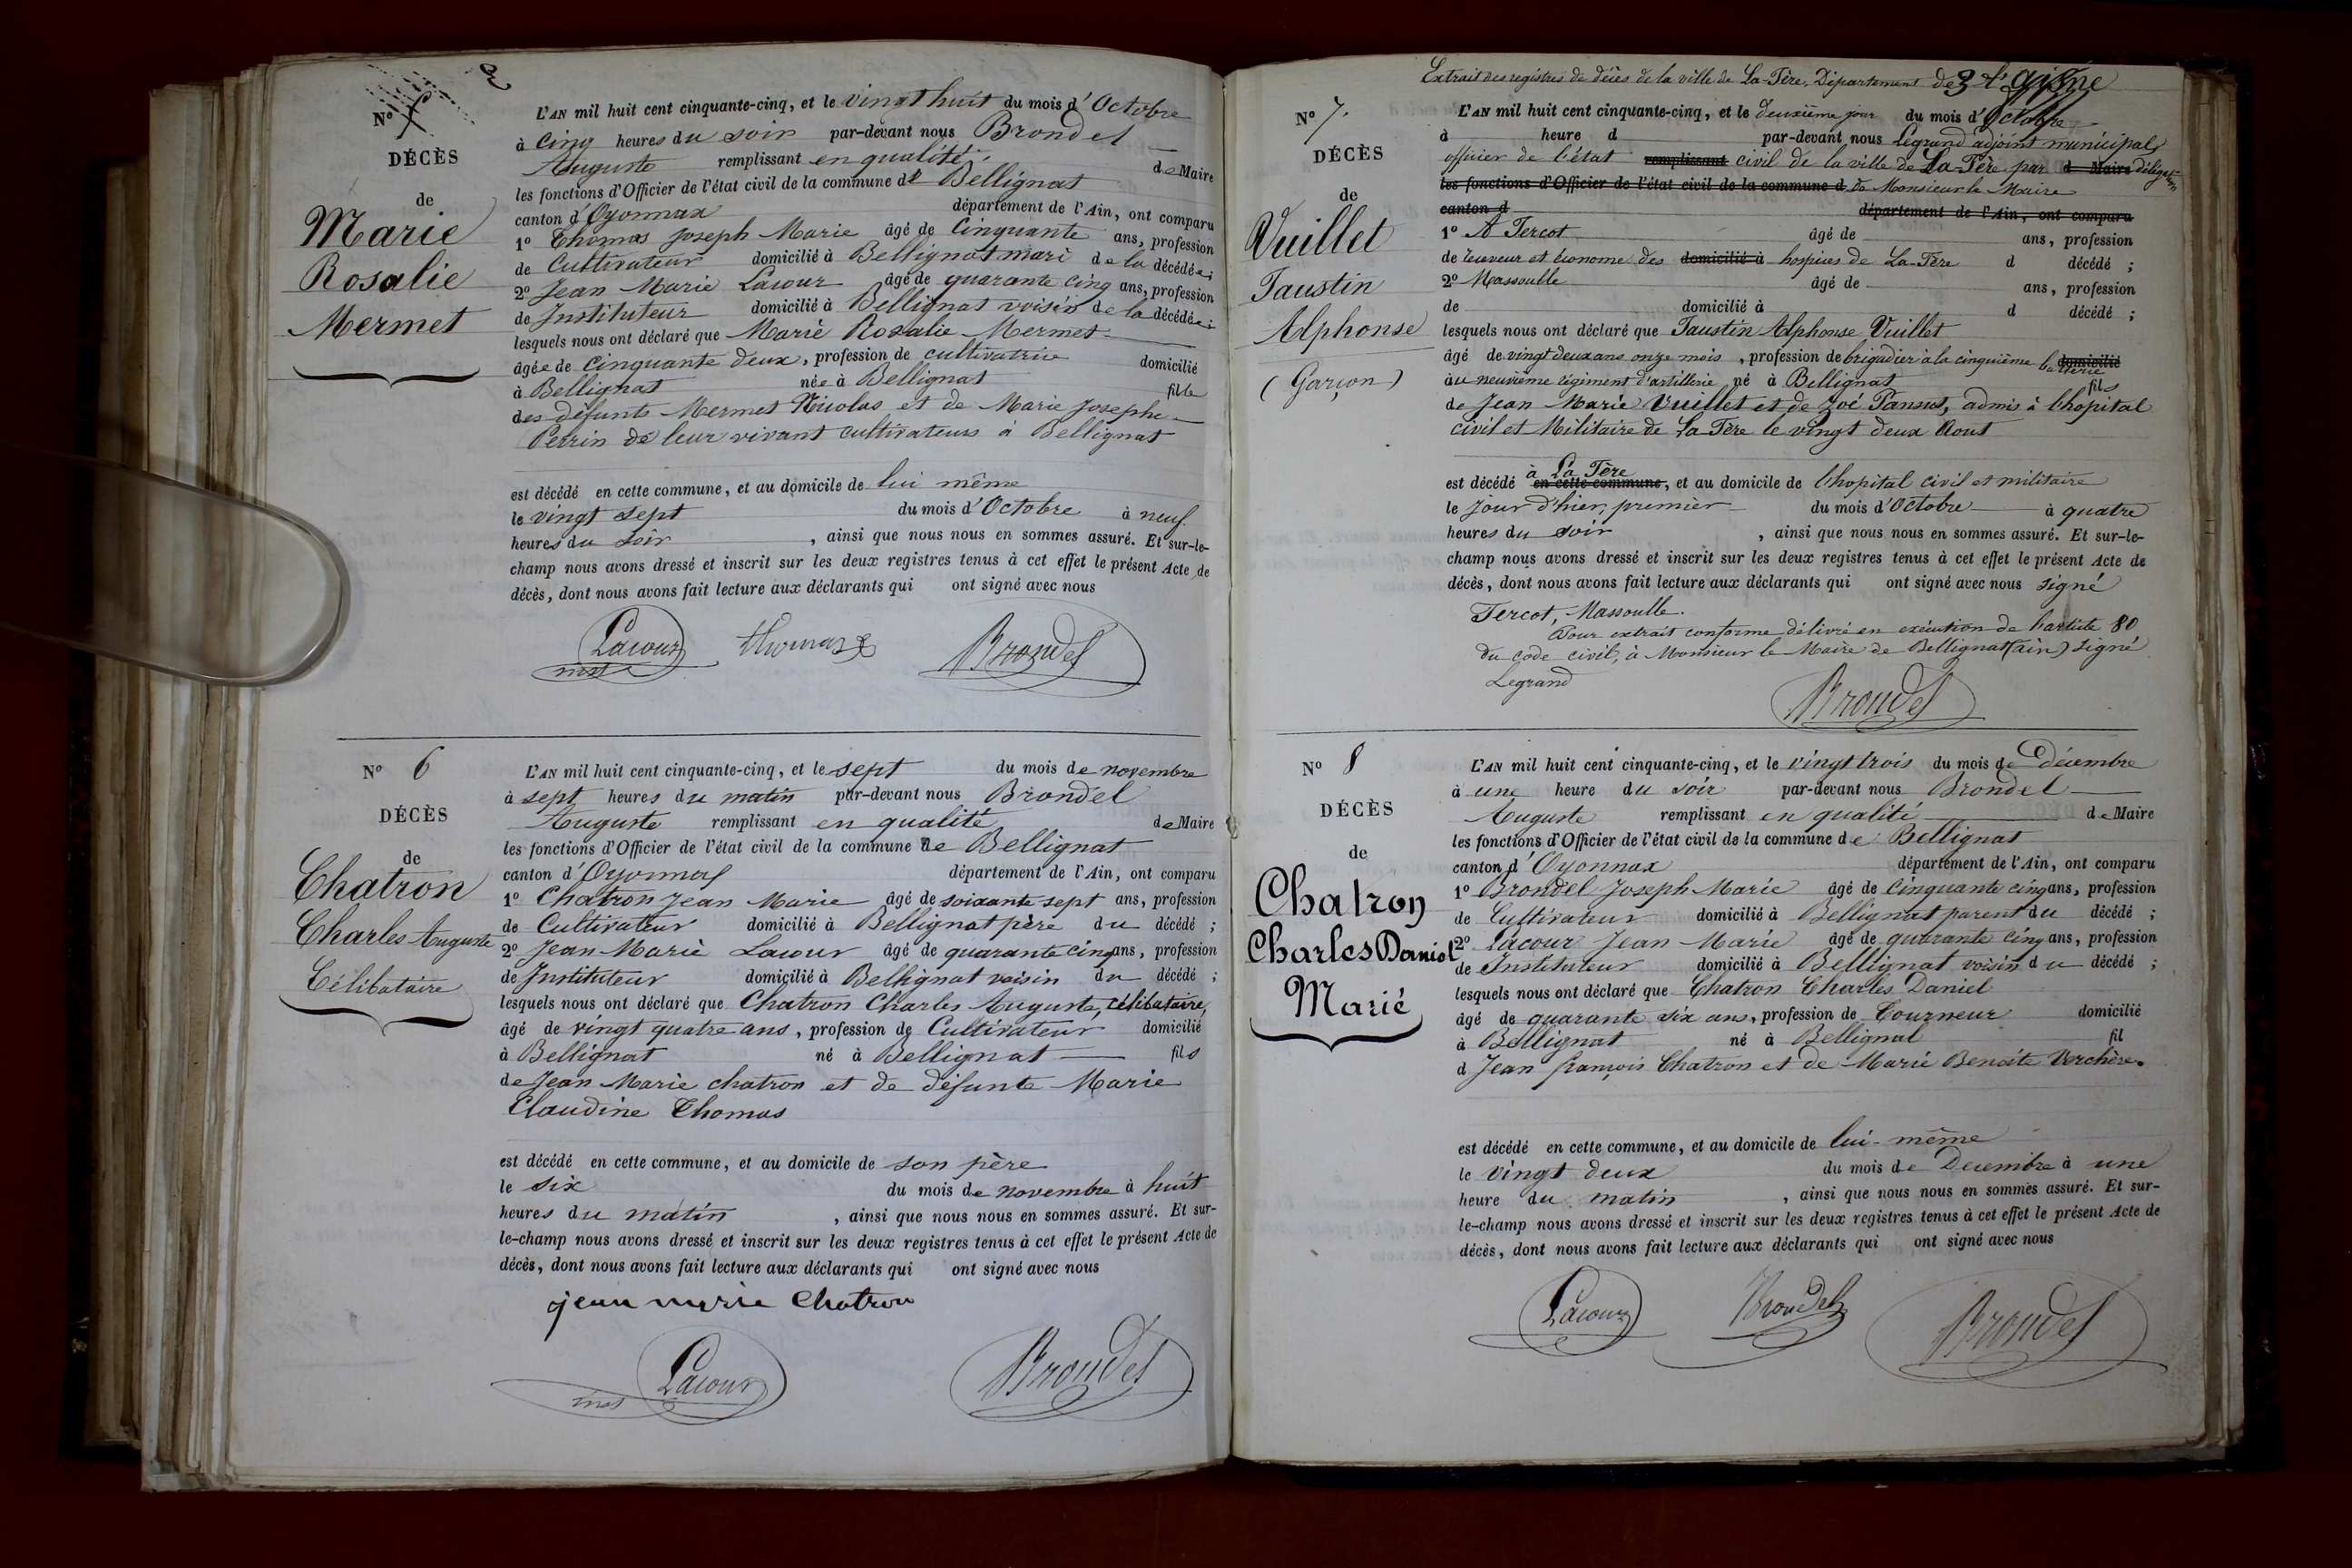 2
Nº 5
DÉCÈS
de
Marie
Rosalie
Mermet
L'AN mil huit cent cinquante-cinq, et le vingt huit du mois d'Octobre
à cinq heures du soir par-devant nous Brondel
Auguste remplissant en qualité de Maire
les fonctions d'Officier de l'état civil de la commune de Bellignat
canton d'Oyonnax département de l'Ain, ont comparu
1º Thomas Joseph Marie âgé de Cinquante ans, profession
de Cultivateur domicilié à Bellignat mari de la décédée ;
2º Jean Marie Lacour âgé de quarante cinq ans, profession
de Instituteur domicilié à Bellignat voisin de la décédée ;
lesquels nous ont déclaré que Marie Rosalie Mermet
âgée de Cinquante deux, profession de cultivatrice domicilié
à Bellignat née à Bellignat fille
des défunts Mermet Nicolas et de Marie Josephe
Perrin de leur vivant cultivateurs à Bellignat
est décédé en cette commune, et au domicile de lui même
le vingt sept du mois d'Octobre à neuf
heures du soir, ainsi que nous nous en sommes assuré. Et sur-le-
champ nous avons dressé et inscrit sur les deux registres tenus à cet effet le présent Acte de
décès, dont nous avons fait lecture aux déclarants qui ont signé avec nous
Lacour Thomas Brondel
Nº 6
DÉCÈS
de
Chatron
Charles Auguste
Célibataire
L'AN mil huit cent cinquante-cinq, et le sept du mois de novembre
à sept heures du matin par-devant nous Brondel
Auguste remplissant en qualité de Maire
les fonctions d'Officier de l'état civil de la commune de Bellignat
canton d'Oyonnax département de l'Ain, ont comparu
1º Chatron Jean Marie âgé de soixante sept ans, profession
de Cultivateur domicilié à Bellignat père du décédé ;
2º Jean Marie Lacour âgé de quarante cinq ans, profession
de Instituteur domicilié à Bellignat voisin du décédé ;
lesquels nous ont déclaré que Chatron Charles Auguste, célibataire,
âgé de vingt quatre ans, profession de Cultivateur domicilié
à Bellignat né à Bellignat fils
de Jean Marie chatron et de défunte Marie
Claudine Thomas
est décédé en cette commune, et au domicile de son père
le six du mois de novembre à huit
heures du matin, ainsi que nous nous en sommes assuré. Et sur-
le-champ nous avons dressé et inscrit sur les deux registres tenus à cet effet le présent Acte de
décès, dont nous avons fait lecture aux déclarants qui ont signé avec nous
jean marie Chatron
Lacour Brondel
Extrait des registres de décès de la ville de La Fère, Département de l'Aisne
3
Nº 7.
DÉCÈS
de
Vuillet
Faustin
Alphonse
(Garçon)
L'AN mil huit cent cinquante-cinq, et le deuxième jour du mois d'Octobre
à heure d par-devant nous Legrand adjoint municipal,
officier de l'état remplissant civil de la ville de La Fère par d Maire délégation
les fonctions d'Officier de l'état civil de la commune d de Monsieur le Maire
canton d département de l'Ain, ont comparu
1º A Tercot âgé de ans, profession
de receveur et économe des domicilié à hospices de La Fère d décédé ;
2º Massoulle âgé de ans, profession
de domicilié à d décédé ;
lesquels nous ont déclaré que Faustin Alphonse Vuillet
âgé de vingt deux ans onze mois, profession de brigadier à la cinquième batterie domicilié
au neuvième régiment d'artillerie né à Bellignat fils
de Jean Marie Vuillet et de Zoé Pansut, admis à l'hopital
civil et Militaire de La Fère le vingt deux Aout
est décédé à La Fère en cette commune, et au domicile de l'hopital civil et militaire
le jour d'hier, premier du mois d'Octobre à quatre
heures du soir, ainsi que nous nous en sommes assuré. Et sur-le-
champ nous avons dressé et inscrit sur les deux registres tenus à cet effet le présent Acte de
décès, dont nous avons fait lecture aux déclarants qui ont signé avec nous signé
Tercot, Massoulle.
Pour extrait conforme délivré en exécution de l'article 80
du code civil, à Monsieur le Maire de Bellignat (ain) signé
Legrand
Brondel
Nº 8
DÉCÈS
de
Chatron
Charles Daniel
Marié
L'AN mil huit cent cinquante-cinq, et le vingt trois du mois de Décembre
à une heure du soir par-devant nous Brondel
Auguste remplissant en qualité de Maire
les fonctions d'Officier de l'état civil de la commune de Bellignat
canton d'Oyonnax département de l'Ain, ont comparu
1º Brondel Joseph Marie âgé de cinquante cinq ans, profession
de Cultivateur domicilié à Bellignat parent du décédé ;
2º Lacour Jean Marie âgé de quarante cinq ans, profession
de Instituteur domicilié à Bellignat voisin du décédé ;
lesquels nous ont déclaré que Chatron Charles Daniel
âgé de quarante six ans, profession de Tourneur domicilié
à Bellignat né à Bellignat fil
d Jean françois Chatron et de Marie Benoite Verchère.
est décédé en cette commune, et au domicile de lui-même
le vingt deux du mois de Decembre à une
heure du matin, ainsi que nous nous en sommes assuré. Et sur-
le-champ nous avons dressé et inscrit sur les deux registres tenus à cet effet le présent Acte de
décès, dont nous avons fait lecture aux déclarants qui ont signé avec nous
Lacour Brondel Brondel